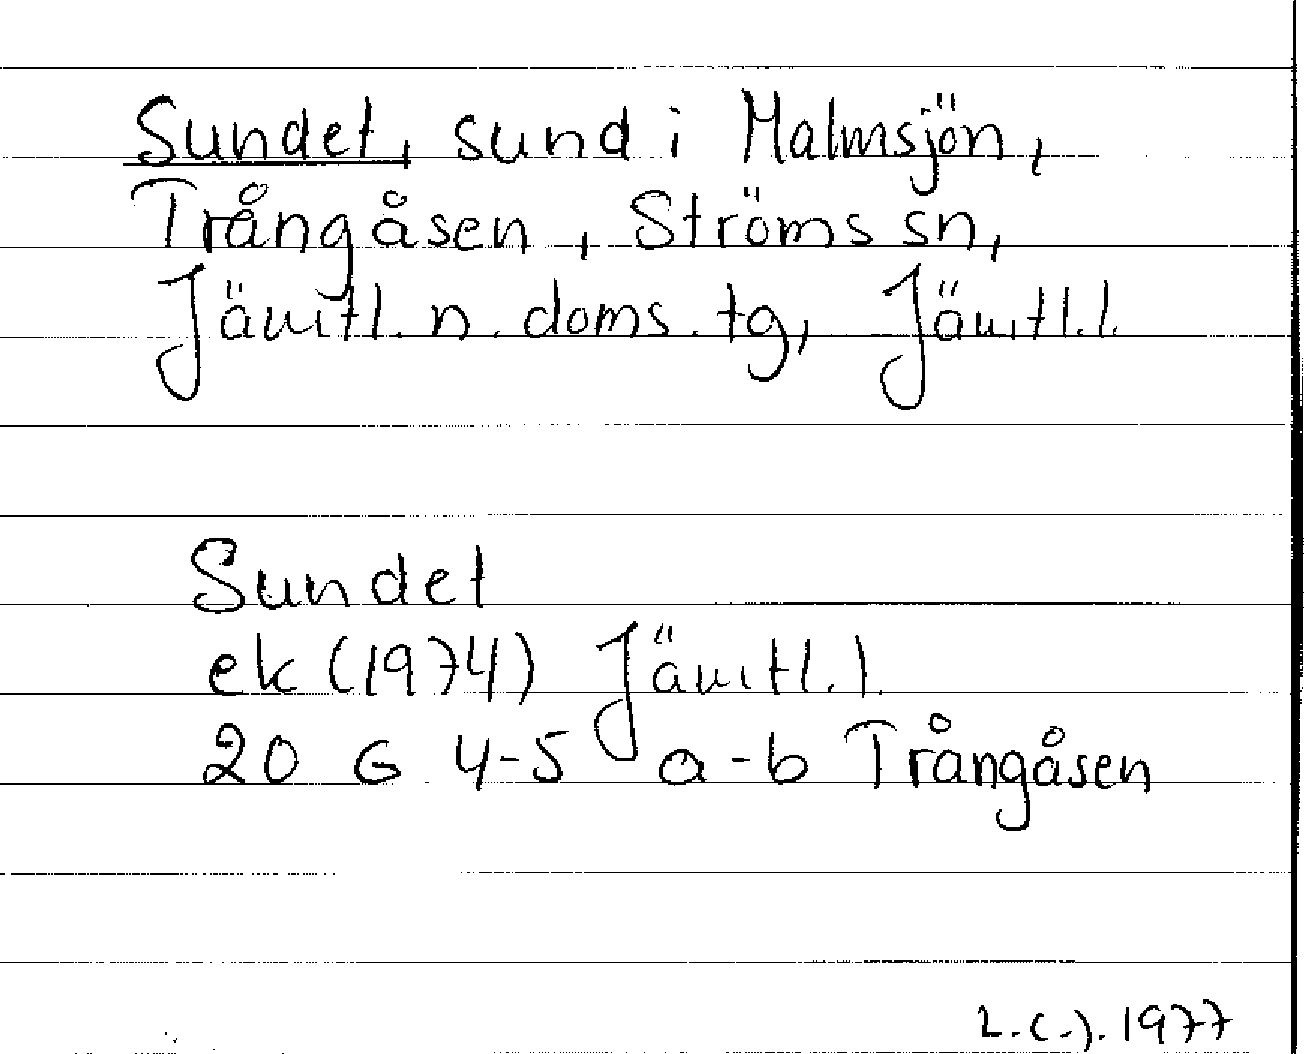 Sundet, sund i Malmsjön,
Trångåsen, Ströms sn,
Jämtl. n. doms. tg, Jämtl.l.
Sundet
ek (1974) Jämtl.l.
20 G 4-5 a-b Trångåsen
1977